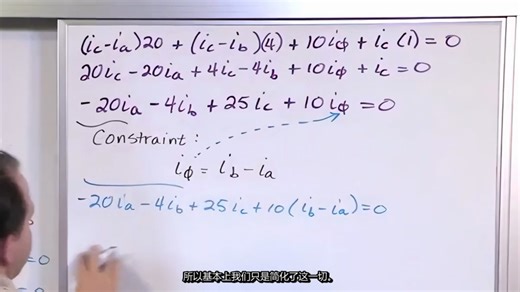 (ic-ia)20 + (ic-ib)(4) + 10iϕ + ic(1) = 0
20ic - 20ia + 4ic - 4ib + 10iϕ + ic = 0
-20ia - 4ib + 25ic + 10iϕ = 0
Constraint:
iϕ = ib - ia
-20ia - 4ib + 25ic + 10(ib - ia) = 0
= 0
所以基本上我们只是简化了这一切,